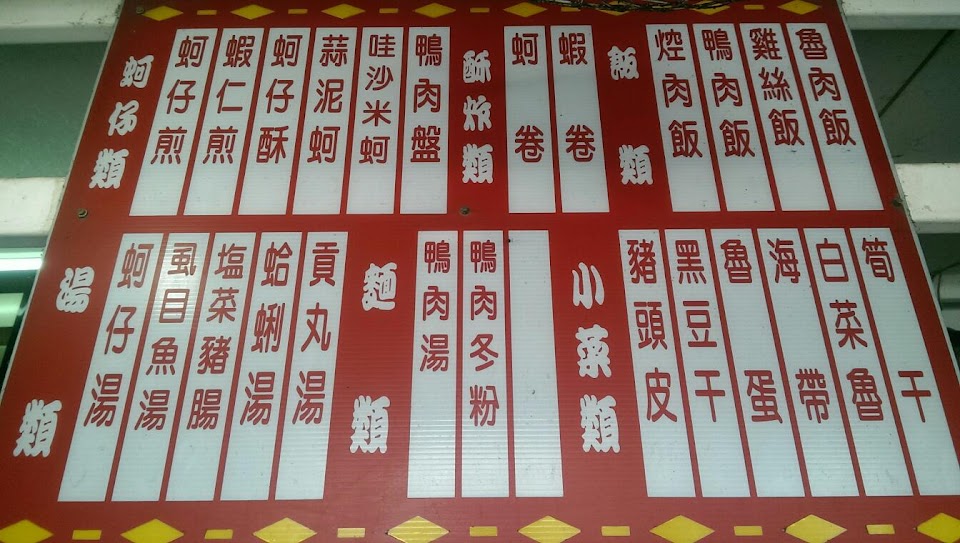 蚵仔類
蚵仔煎
蝦仁煎
蚵仔酥
蒜泥蚵
哇沙米蚵
鴨肉盤
酥炸類
蚵卷
蝦卷
飯類
焢肉飯
鴨肉飯
雞絲飯
魯肉飯
湯類
蚵仔湯
虱目魚湯
塩菜豬腸
蛤蜊湯
貢丸湯
麵類
鴨肉湯
鴨肉冬粉
小菜類
豬頭皮
黑豆干
魯蛋
海帶
白菜魯
筍干